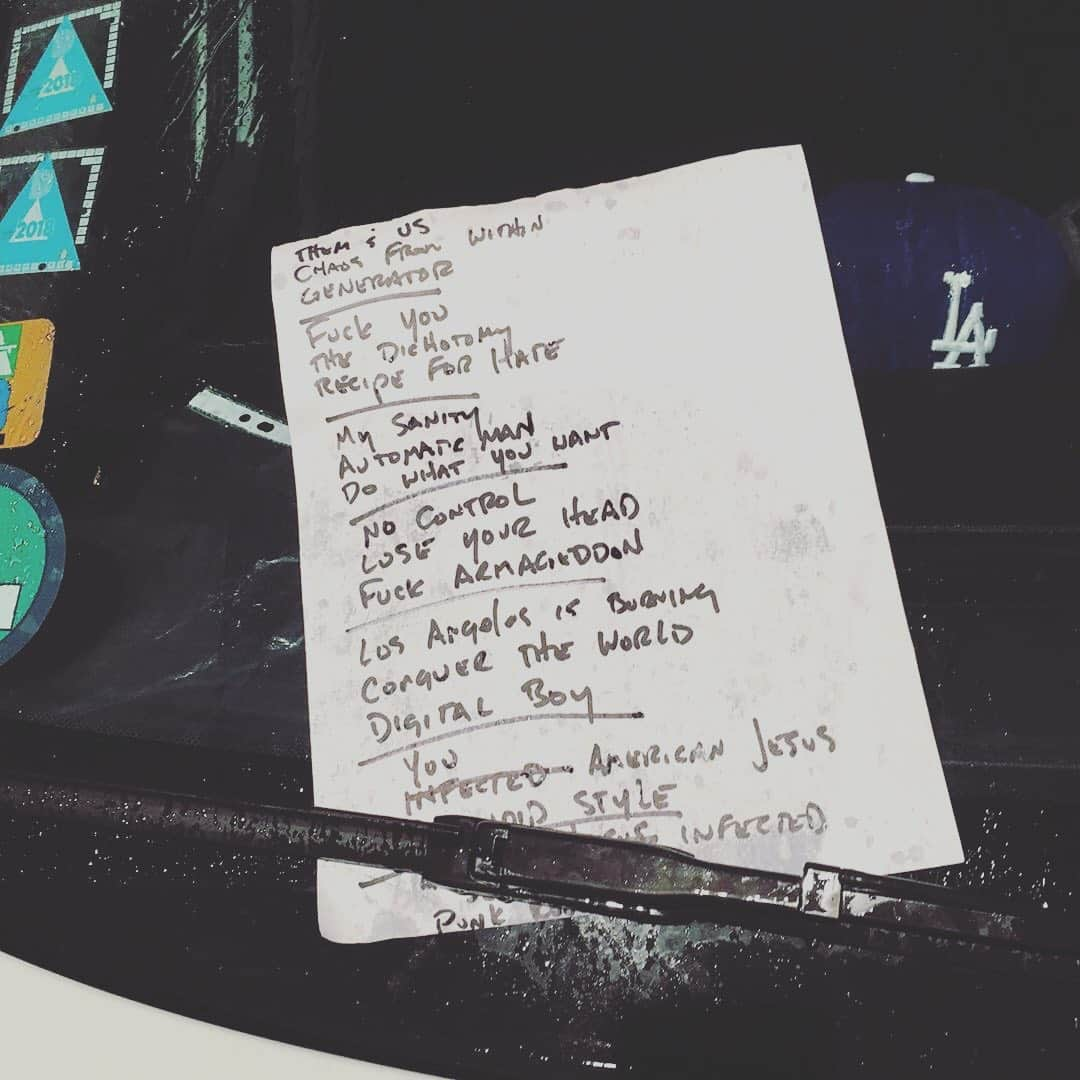 2018
2018
LA
THEM & US
CHAOS FROM WITHIN
GENERATOR
FUCK YOU
THE DICHOTOMY
RECIPE FOR HATE
MY SANITY
AUTOMATIC MAN
DO WHAT YOU WANT
NO CONTROL
LOSE YOUR HEAD
FUCK ARMAGEDDON
LOS ANGELES IS BURNING
CONQUER THE WORLD
DIGITAL BOY
YOU
INFECTED AMERICAN JESUS
STYLE
INFECTED
PUNK